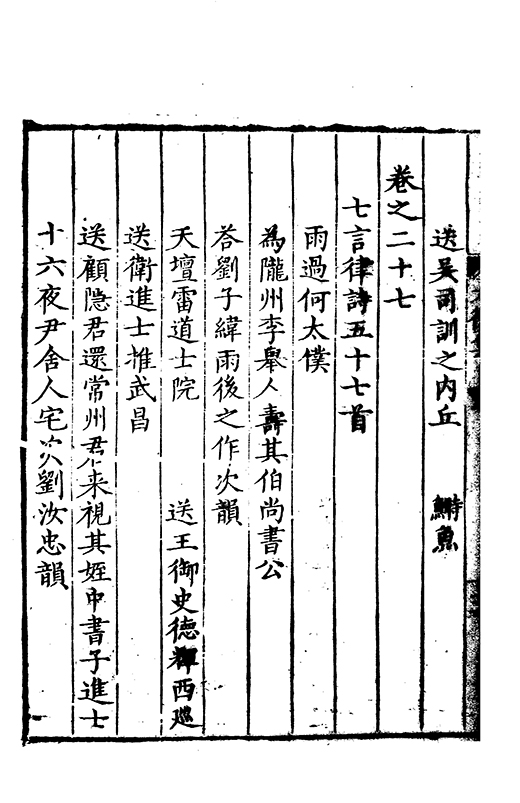 送吳司訓之内丘　鰣魚
卷之二十七
七言律詩五十七首
雨過何太僕
為隴州李舉人壽其伯尚書公
答劉子緯雨後之作次韻
天壇雷道士院　送王御史德輝西巡
送衛進士推武昌
送顧隐君還常州君来視其姪中書子進士
十六夜尹舍人宅次劉汝忠韻